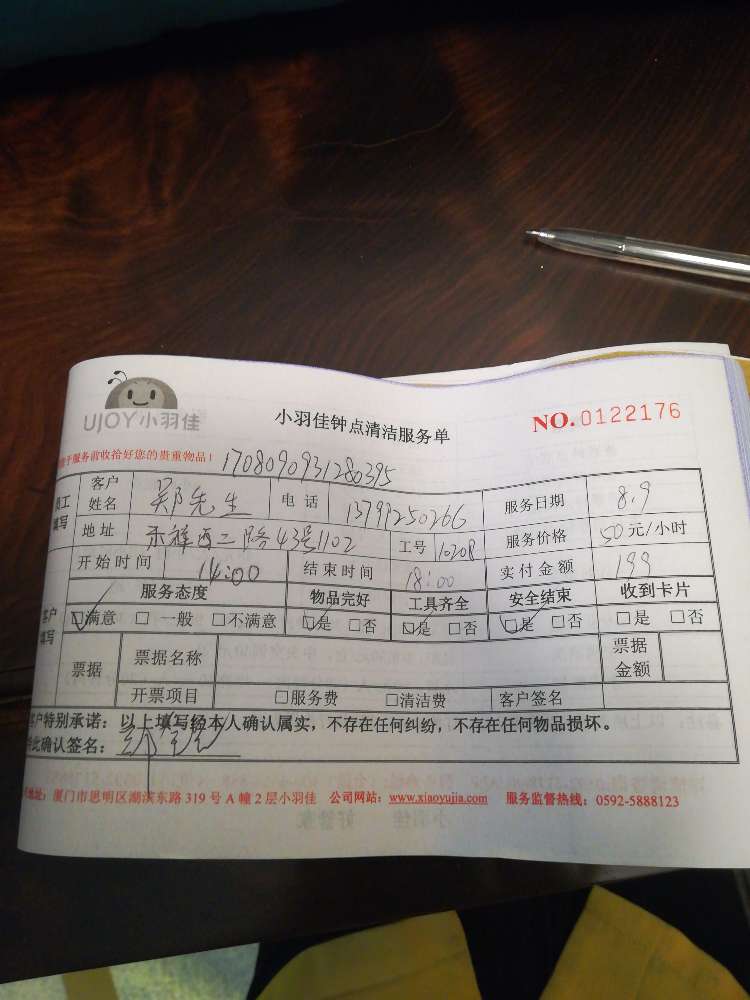 UJOY小羽佳
小羽佳钟点清洁服务单
NO.0122176
于服务前收拾好您的贵重物品！ 1708090931280395
员工填写 客户姓名 郑先生 电话 13799250266 服务日期 8.9
地址 禾祥西二路43号1102 工号 10208 服务价格 50元/小时
开始时间 14:00 结束时间 18:00 实付金额 199
服务态度 物品完好 工具齐全 安全结束 收到卡片
客户填写 ☑满意 □一般 □不满意 ☑是 □否 ☑是 □否 ☑是 □否 □是 □否
票据 票据名称 票据金额
开票项目 □服务费 □清洁费 客户签名
客户特别承诺：以上填写经本人确认属实，不存在任何纠纷，不存在任何物品损坏。
特此确认签名：
地址：厦门市思明区湖滨东路319号A幢2层小羽佳 公司网站：www.xiaoyujia.com 服务监督热线：0592-5888123